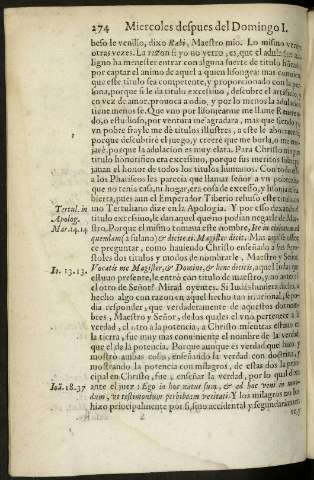 274 Miercoles despues del Domingo I.
beso le vendio, dixo Rabi, Maestro mio. Lo mismo
otras vezes. La razon si yo no yerro, es, que el
ligno ha menester entrar con alguna suerte de titulo
por captar el animo de aquel a quien lisongea: mas
que este titulo sea competente, y proporcionado con la per
sona, porque si le da titulo excessiuo, descubre el artificio, y
en vez de amor, prouoca a odio, y por lo menos la adulacion
tiene menos fè. Que vn por lisongearme me llame
do, o estudioso, por ventura me agradara, mas que siendo yo
vn pobre frayle me dè titulos illustres, a este lè aborrecerè,
porque descubrirè el juego, y creerè que me burla, o
jarè, porque la adulacion es muy clara. Para Christo ningun
titulo honorifico era excessiuo, porque sus meritos
jauan el honor de todos los titulos humanos. Con todo
a los Phariseos les parecia que llamar señor a vn
que no tenia casa, ni hogar, era cosa de excesso, y lisonja
bierta, pues aun el Emperador Tiberio rehuso este titulo
Tertul. in mo Tertuliano dize en la Apologia. Y por esso dexando el
Apolog. titulo excessiuo, le dan aquel que no podian negarle de Maes
Mar. 14.14 tro. Porque el mismo tomaua este nombre, Ite in ciuitatem ad
quendam (a fulano) & dicite ei. Magister dicit. Mas aqui se
ce preguntar, como hauiendo Christo enseñado a sus Apos
stoles dos titulos y modos de nombrarle, Maestro y Señor
Io. 13.13. Vocatis me Magister, & Domine, & bene dicitis, aquel Iudas que
estuuo presente, le entrò con titulo de maestro, y no
el otro de Señor? Mirad oyentes. Si Iudas huuiera dicho, o
hecho algo con razon en aquel hecho tan irracional, se po
dia responder, que verdaderamente de aquestos dos nom
bres, Maestro y Señor, de los quales el vno pertenece a la
verdad, el otro a la potencia, a Christo mientras estuuo en
la tierra, fue muy mas conueniente el nombre de la verdad,
que el de la potencia. Porque aunque es verdad que hizo, y
mostro ambas cosas, enseñando la verdad con doctrina, y
mostrando la potencia con milagros, de estas dos la prin
cipal en Christo, fue, enseñar la verdad, por lo qual dixo
Ioã. 18.37 ante el juez: Ego in hoc natus sum, & ad hoc veni in mun
dum, vt testimonium perhibeam veritati. Y los milagros no los
hizo principalmente por si, sino accidental y segundariamen
te, y